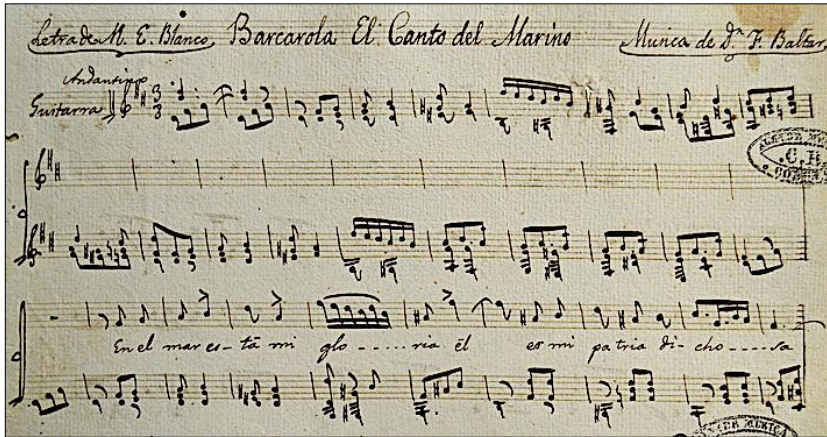 Letra de M. E. Blanco, Barcarola El Canto del Marino Musica de Dn F. Baltar,
Andantino
Guitarra
En el mar es-tá mi glo.....ria él es mi patria di-cho....sa